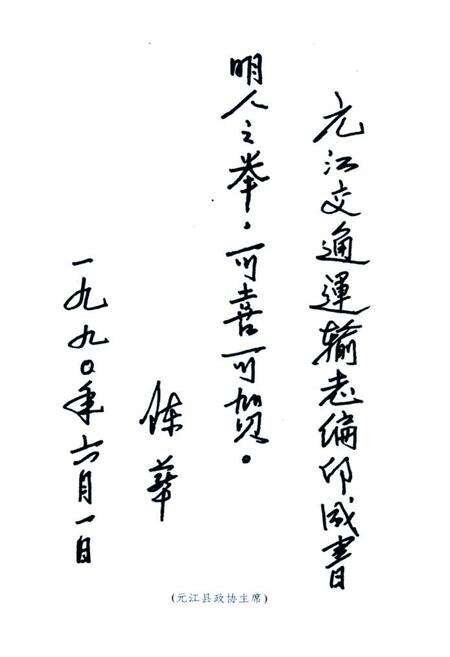 元江交通運输志编印成書
明人之举。可喜可贺。
陈華
一九九〇年六月一日
(元江县政协主席)